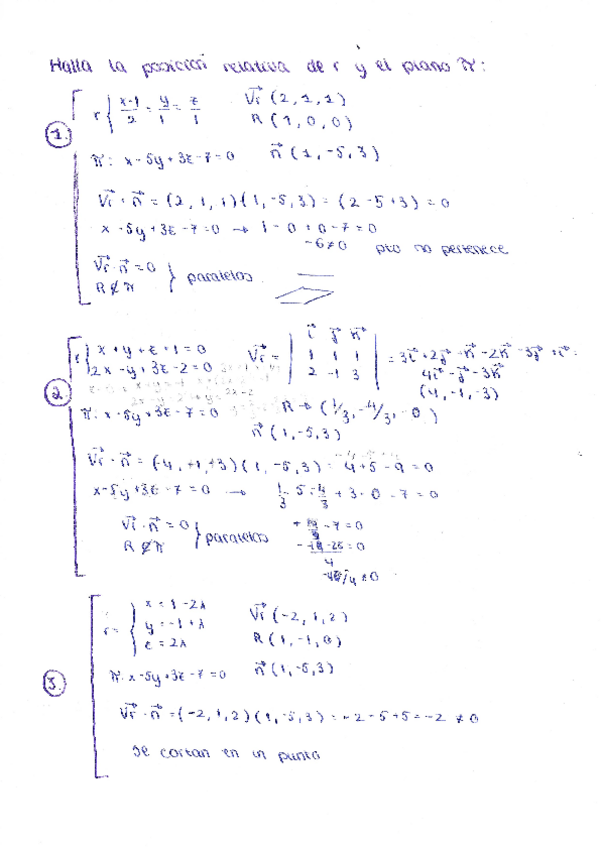 Halla la posición relativa de r y el plano π:
1. r { x-1/2 = y/1 = z/1 Vr (2,1,1)
R (1,0,0)
π: x-5y+3z-7=0 n (1,-5,3)
Vr · n = (2,1,1)(1,-5,3) = (2-5+3) = 0
x-5y+3z-7=0 → 1-0+0-7=0
-6≠0 pto no pertenece
Vr · n = 0
R ∉ π } paralelos
2. r { x+y+z+1=0
2x-y+3z-2=0
Vr = | i j k | 1 1 1 | 2 -1 3 | = 3i+2j-k-2k-3j+i =
4i-j-3k
(4,-1,-3)
π: x-5y+3z-7=0 R → (1/3, -4/3, 0)
n (1,-5,3)
Vr · n = (-4,+1,+3)(1,-5,3) = 4+5-9=0
x-5y+3z-7=0 → 1/3 - 5·-4/3 + 3·0 - 7 = 0
Vr · n = 0
R ∉ π } paralelos
3. r = { x = 1-2λ
y = -1+λ
z = 2λ
Vr (-2,1,2)
R (1,-1,0)
π: x-5y+3z-7=0 n (1,-5,3)
Vr · n = (-2,1,2)(1,-5,3) = -2-5+5 = -2 ≠ 0
Se cortan en un punto